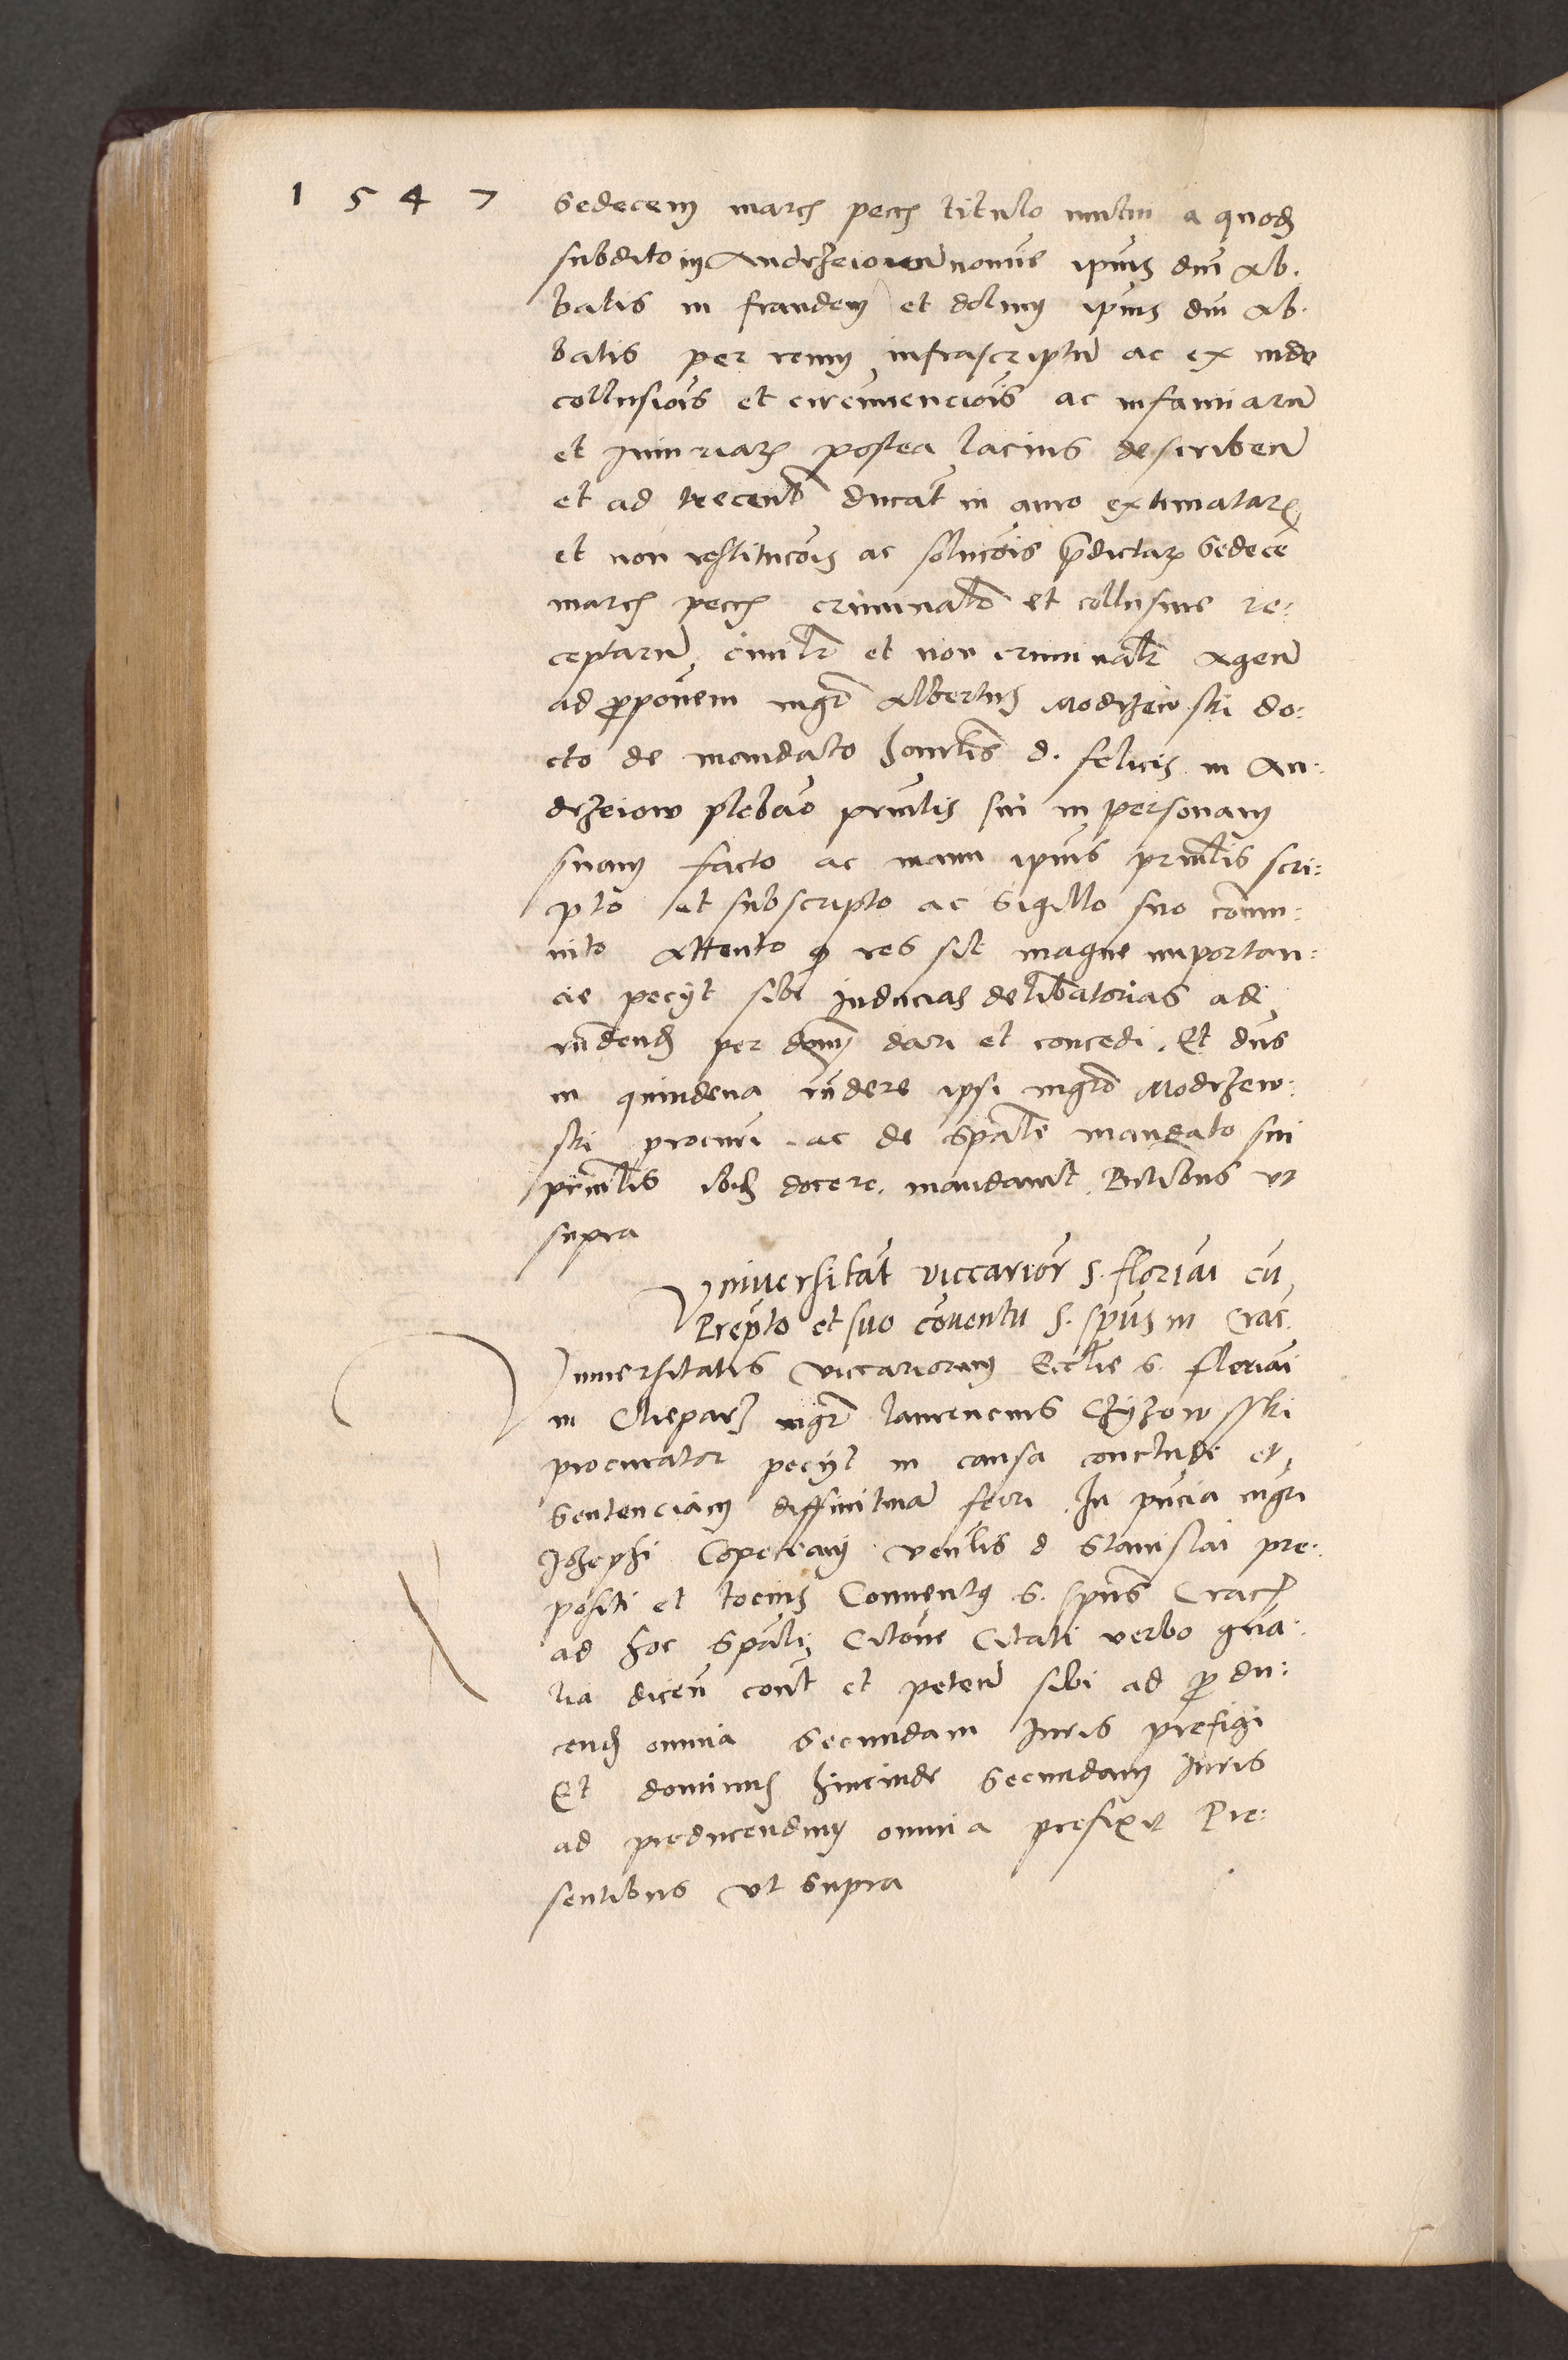 1 5 4 7
sedecem march pecch titulo mutui a quodam
subdito in Andrzeiow nomine ipius dni Ab.
batis in fraudem et dolum ipius dni Ab.
batis per reum infrascriptū ac ex inde
collusiois et circuvenciois ac infamiarū
et Iniuriarz postea lacius describen̄
et ad trecent ducat in auro extimatarz
et non restitucois ac solucois p̄dictarz sedecē
march pecch criminal̄r et collusive re:
ceptarū civil̄r et non criminal̄r agen̄
ad p̱ponem mgr̄ Albertus Modrzewski do:
cto de mandato honrlis d. felicis in An:
drzeiow plebano prnlis sui in personam
suam facto ac manu ipius prnlis scri:
pto et subscripto ac sigillo suo com̄u:
nito Attento q̱ res sit magne importan:
cie peciit sibi Inducias deliberatorias ad
rn̄dendum per dnum dari et concedi. Et dns
in quindena rn̄dere ipsi mgro Modrzew:
ski procuri. ac de spali mandato sui
prnlis ibidem docere. mandavit. Pntibus ut
supra
Vniversitat viccarior S. floriai cū
Prep̄to et suo cōventu S. spus in Crac.
Vniversitatis viccariorum Ecclie s. floriai
in Clieparz mgr̄ laurencius Czyzowsski
procurator peciit in causa concludi et
sentenciam diffinitivā ferri. In pncia mgri
Ioseph Copeciani venlis d Stanislai pre:
positi et tocius Conventus s. spus Crach
ad hoc spali Citone Citati verbo gna:
lia dicen̄ cont et peten̄ sibi ad p̱du:
cend omnia secundam Iuris prefigi
Et dominus hincinde secundam Iuris
ad producendum omnia prefixit Pre:
sentibus ut supra